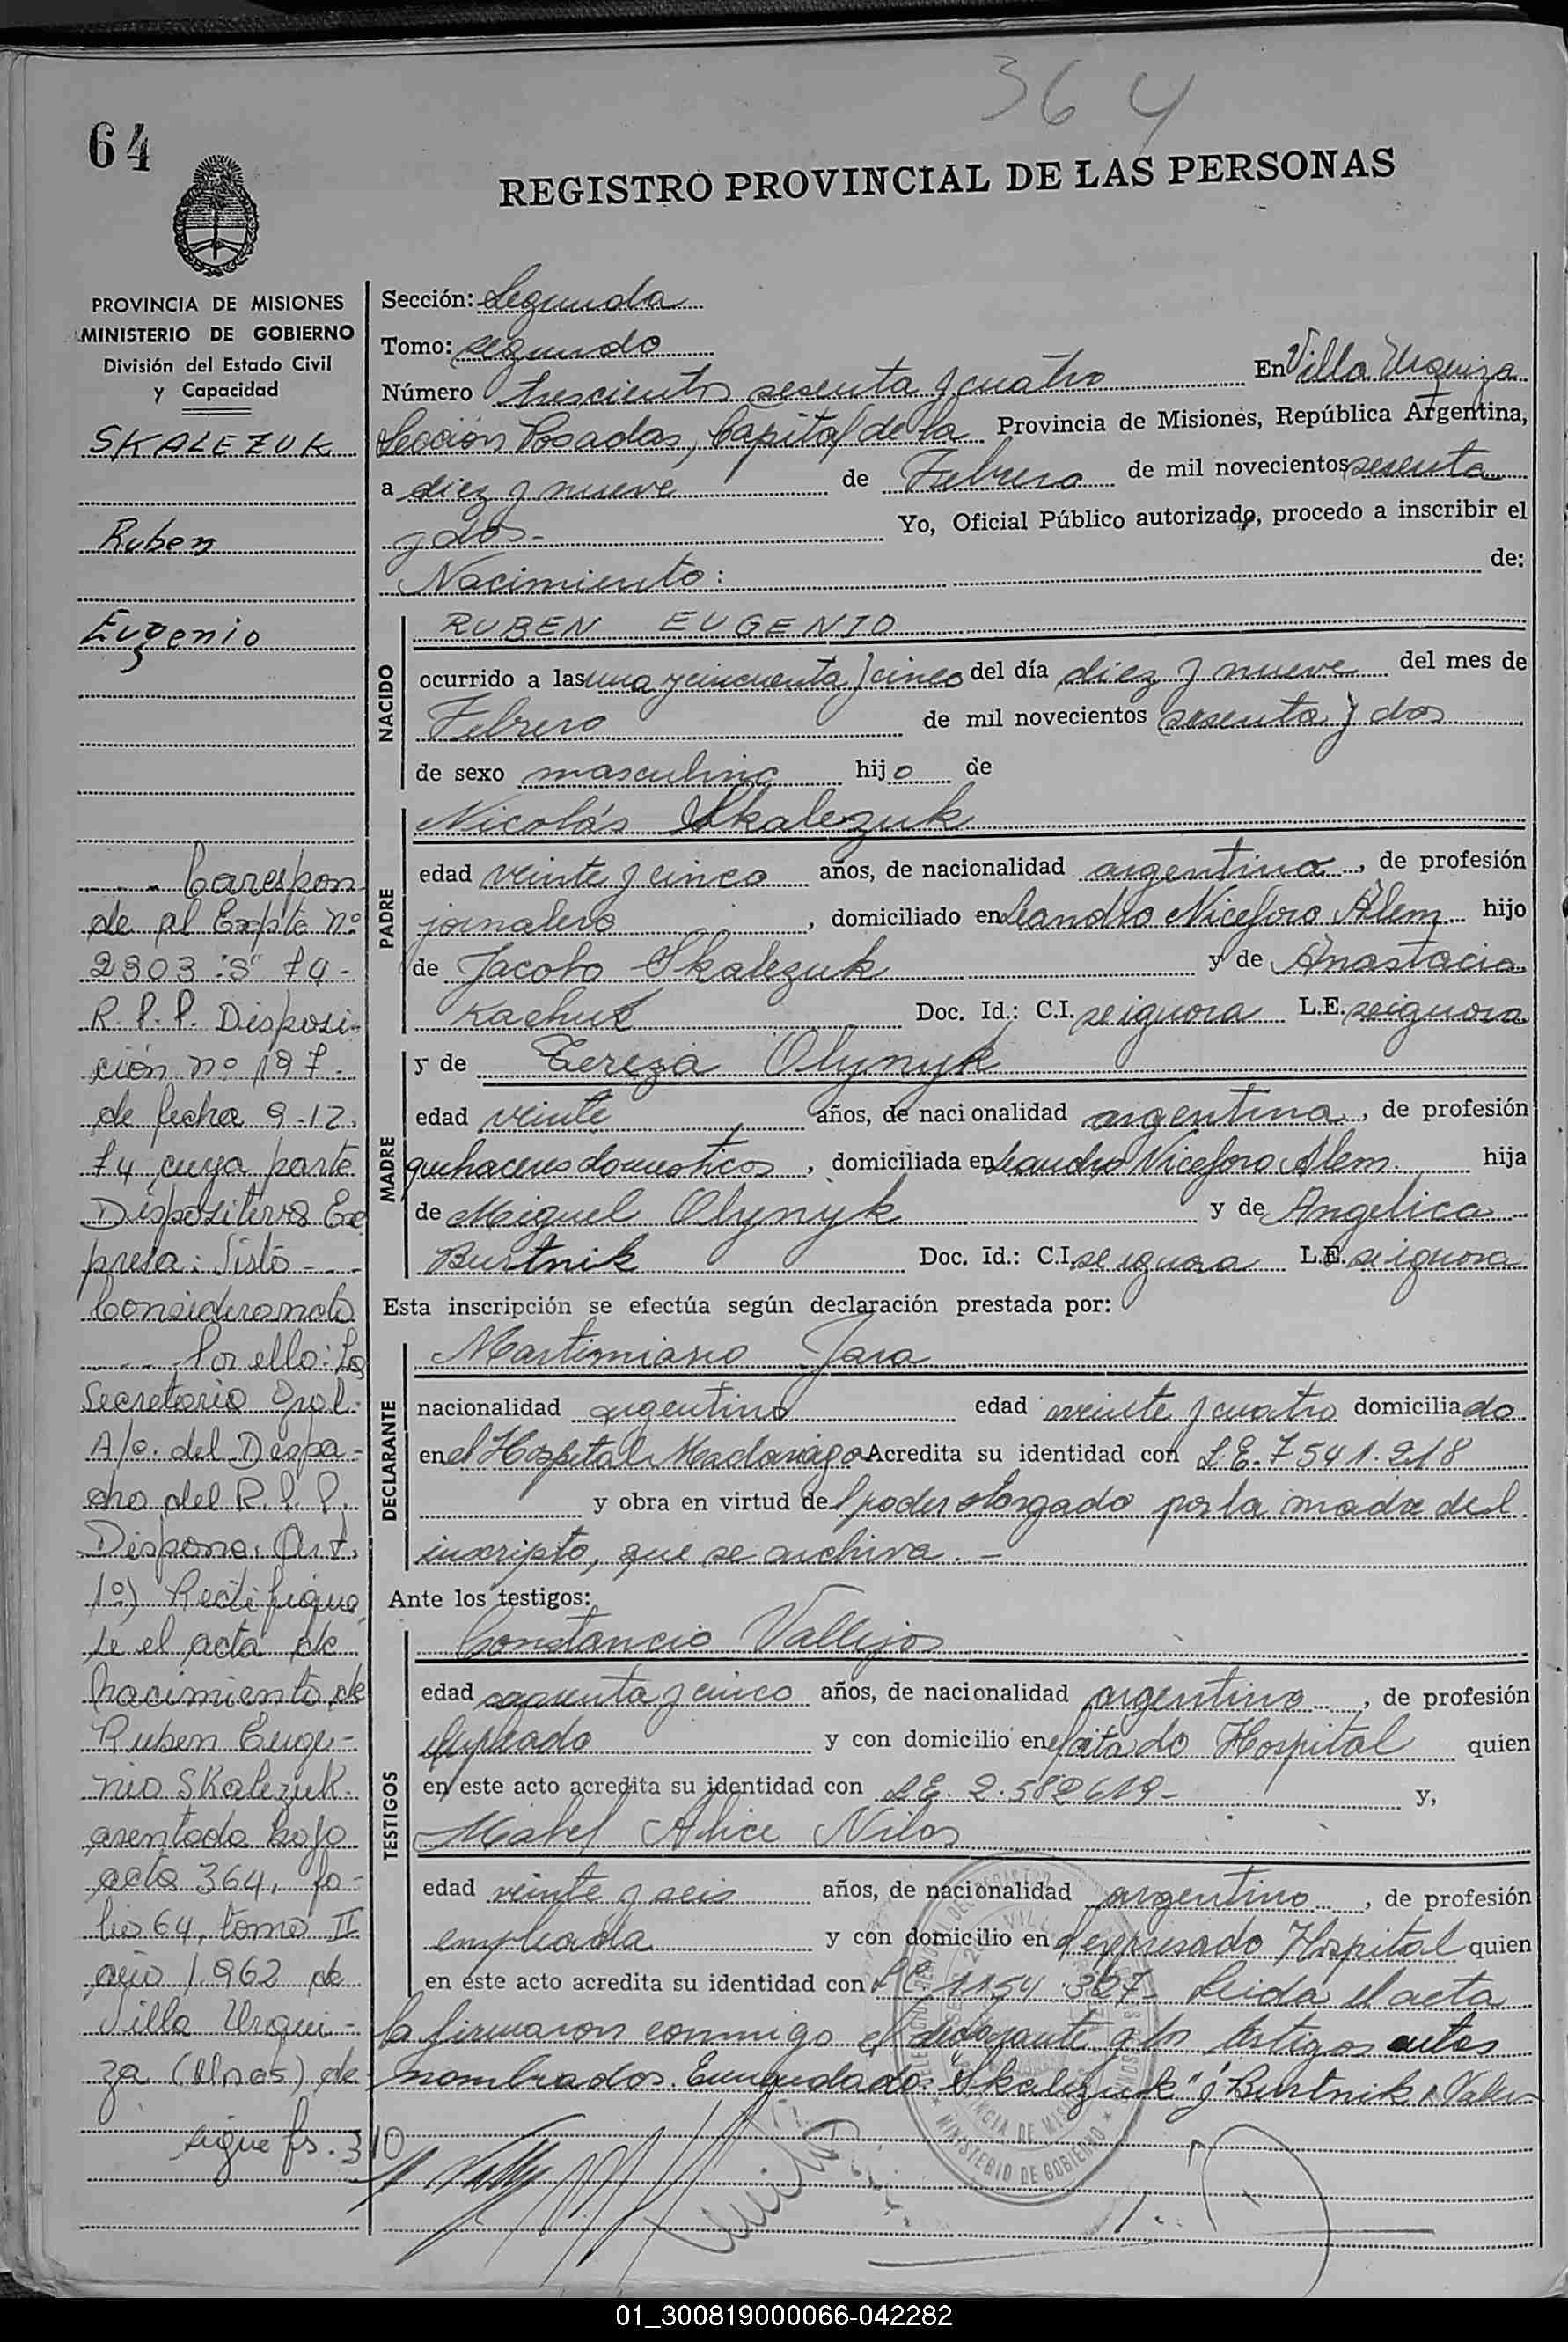 364
64
REGISTRO PROVINCIAL DE LAS PERSONAS
PROVINCIA DE MISIONES
MINISTERIO DE GOBIERNO
División del Estado Civil
y Capacidad
SKALEZUK
Ruben
Eugenio
Corespon
de al Expte nº
2303 "S" 74-
R.P.P. Disposi-
ción nº 197-
de fecha 9-12-
74 cuya parte
Dispositiva Ex
presa: Visto - - -
Considerando
- - - Por ello: La
Secretaria Gral.
A/c. del Despa-
cho del R.P.P.
Dispone: Art.
1º) Rectifique
se el acta de
nacimiento de
Ruben Euge-
nio Skalezuk.
asentada bajo
acta 364, fo-
lio 64, tomo II
año 1.962 de
Villa Urqui-
za (Mnes) de
sigue fs. 310
Sección: Segunda
Tomo: segundo
Número trescientos sesenta y cuatro En Villa Urquiza
Sección Posadas, Capital de la Provincia de Misiones, República Argentina,
a diez y nueve de Febrero de mil novecientos sesenta
y dos.- Yo, Oficial Público autorizado, procedo a inscribir el
Nacimiento: de:
NACIDO
RUBEN EUGENIO
ocurrido a las una y cincuenta y cinco del día diez y nueve del mes de
Febrero de mil novecientos sesenta y dos
de sexo masculino hijo de
PADRE
Nicolás Skalezuk
edad veinte y cinco años, de nacionalidad argentina, de profesión
jornalero, domiciliado en Leandro Niceforo Alem hijo
de Jacobo Skalezuk y de Anastacia
Kachuk Doc. Id.: C.I. se ignora L.E. se ignora
MADRE
y de Tereza Olynyk
edad veinte años, de nacionalidad argentina, de profesión
quehaceres domesticos, domiciliada en Leandro Niceforo Alem. hija
de Miguel Olynyk y de Angelica
Burtnik Doc. Id.: C.I. se ignora L.E. se ignora
Esta inscripción se efectúa según declaración prestada por:
DECLARANTE
Martimiano Jara
nacionalidad argentino edad veinte y cuatro domiciliado
en el Hospital Madariaga Acredita su identidad con L.E. 7541.218
y obra en virtud del poder otorgado por la madre del
inscripto, que se archiva.-
Ante los testigos:
TESTIGOS
Constancio Vallejos
edad y cinco años, de nacionalidad argentino, de profesión
empleado y con domicilio en el citado Hospital quien
en este acto acredita su identidad con L.E. 2.582619- y,
Mabel Alice
edad veinte y seis años, de nacionalidad argentina, de profesión
empleada y con domicilio en el expresado Hospital quien
en este acto acredita su identidad con L.C. 1154.327- Leida el acta
la firmaron conmigo el declarante y los testigos antes
nombrados. Enmendado: "Skalezuk" y "Burtnik" Valen
MINISTERIO DE GOBIERNO
01_300819000066-042282